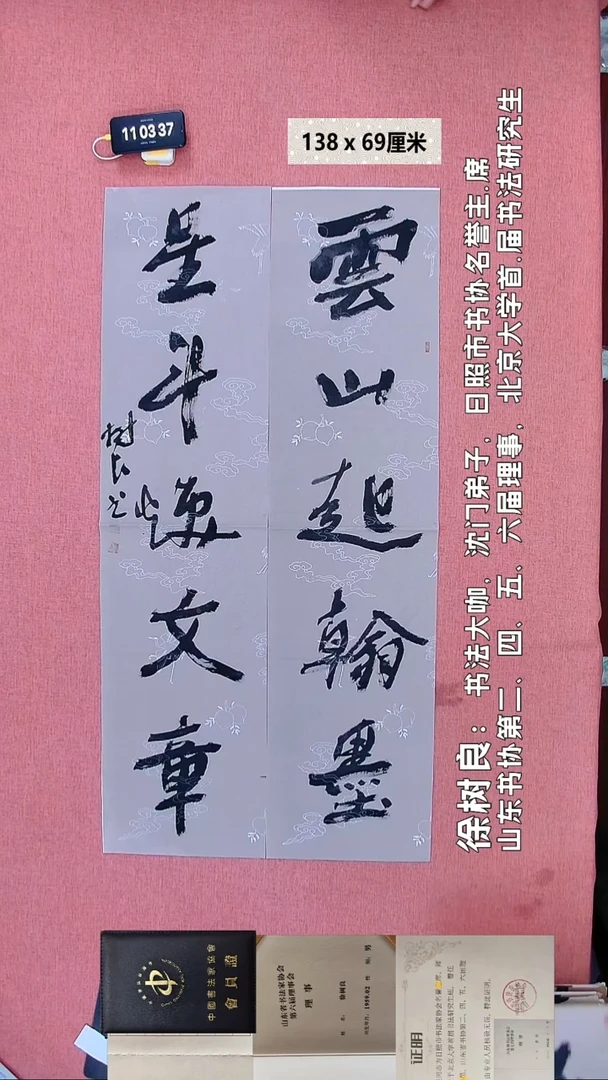 11 03 37
138 x 69厘米
雲山起翰墨
星斗焕文章
树良书
徐树良：书法大咖，沈门弟子，日照市书协名誉主.席
山东书协第二、四、五、六届理事，北京大学首.届书法研究生
中國書法家協會
會員證
山东省书法家协会
第六届理事会
理事
徐树良
男
证明